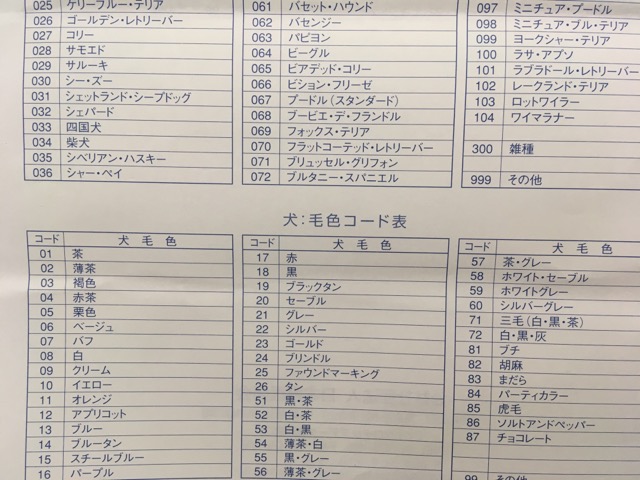 025 ケリーブルー・テリア
026 ゴールデン・レトリーバー
027 コリー
028 サモエド
029 サルーキ
030 シー・ズー
031 シェットランド・シープドッグ
032 シェパード
033 四国犬
034 柴犬
035 シベリアン・ハスキー
036 シャー・ペイ
061 バセット・ハウンド
062 バセンジー
063 パピヨン
064 ビーグル
065 ビアデッド・コリー
066 ビション・フリーゼ
067 プードル(スタンダード)
068 ブービエ・デ・フランドル
069 フォックス・テリア
070 フラットコーテッド・レトリーバー
071 ブリュッセル・グリフォン
072 ブルタニー・スパニエル
097 ミニチュア・プードル
098 ミニチュア・ブル・テリア
099 ヨークシャー・テリア
100 ラサ・アプソ
101 ラブラドール・レトリーバー
102 レークランド・テリア
103 ロットワイラー
104 ワイマラナー
300 雑種
999 その他
犬:毛色コード表
コード 犬毛色
01 茶
02 薄茶
03 褐色
04 赤茶
05 栗色
06 ベージュ
07 バフ
08 白
09 クリーム
10 イエロー
11 オレンジ
12 アプリコット
13 ブルー
14 ブルータン
15 スチールブルー
16 パープル
コード 犬毛色
17 赤
18 黒
19 ブラックタン
20 セーブル
21 グレー
22 シルバー
23 ゴールド
24 ブリンドル
25 ファウンドマーキング
26 タン
51 黒・茶
52 白・茶
53 白・黒
54 薄茶・白
55 黒・グレー
56 薄茶・グレー
コード 犬毛色
57 茶・グレー
58 ホワイト・セーブル
59 ホワイトグレー
60 シルバーグレー
71 三毛(白・黒・茶)
72 白・黒・灰
81 ブチ
82 胡麻
83 まだら
84 パーティカラー
85 虎毛
86 ソルトアンドペッパー
87 チョコレート
99 その他